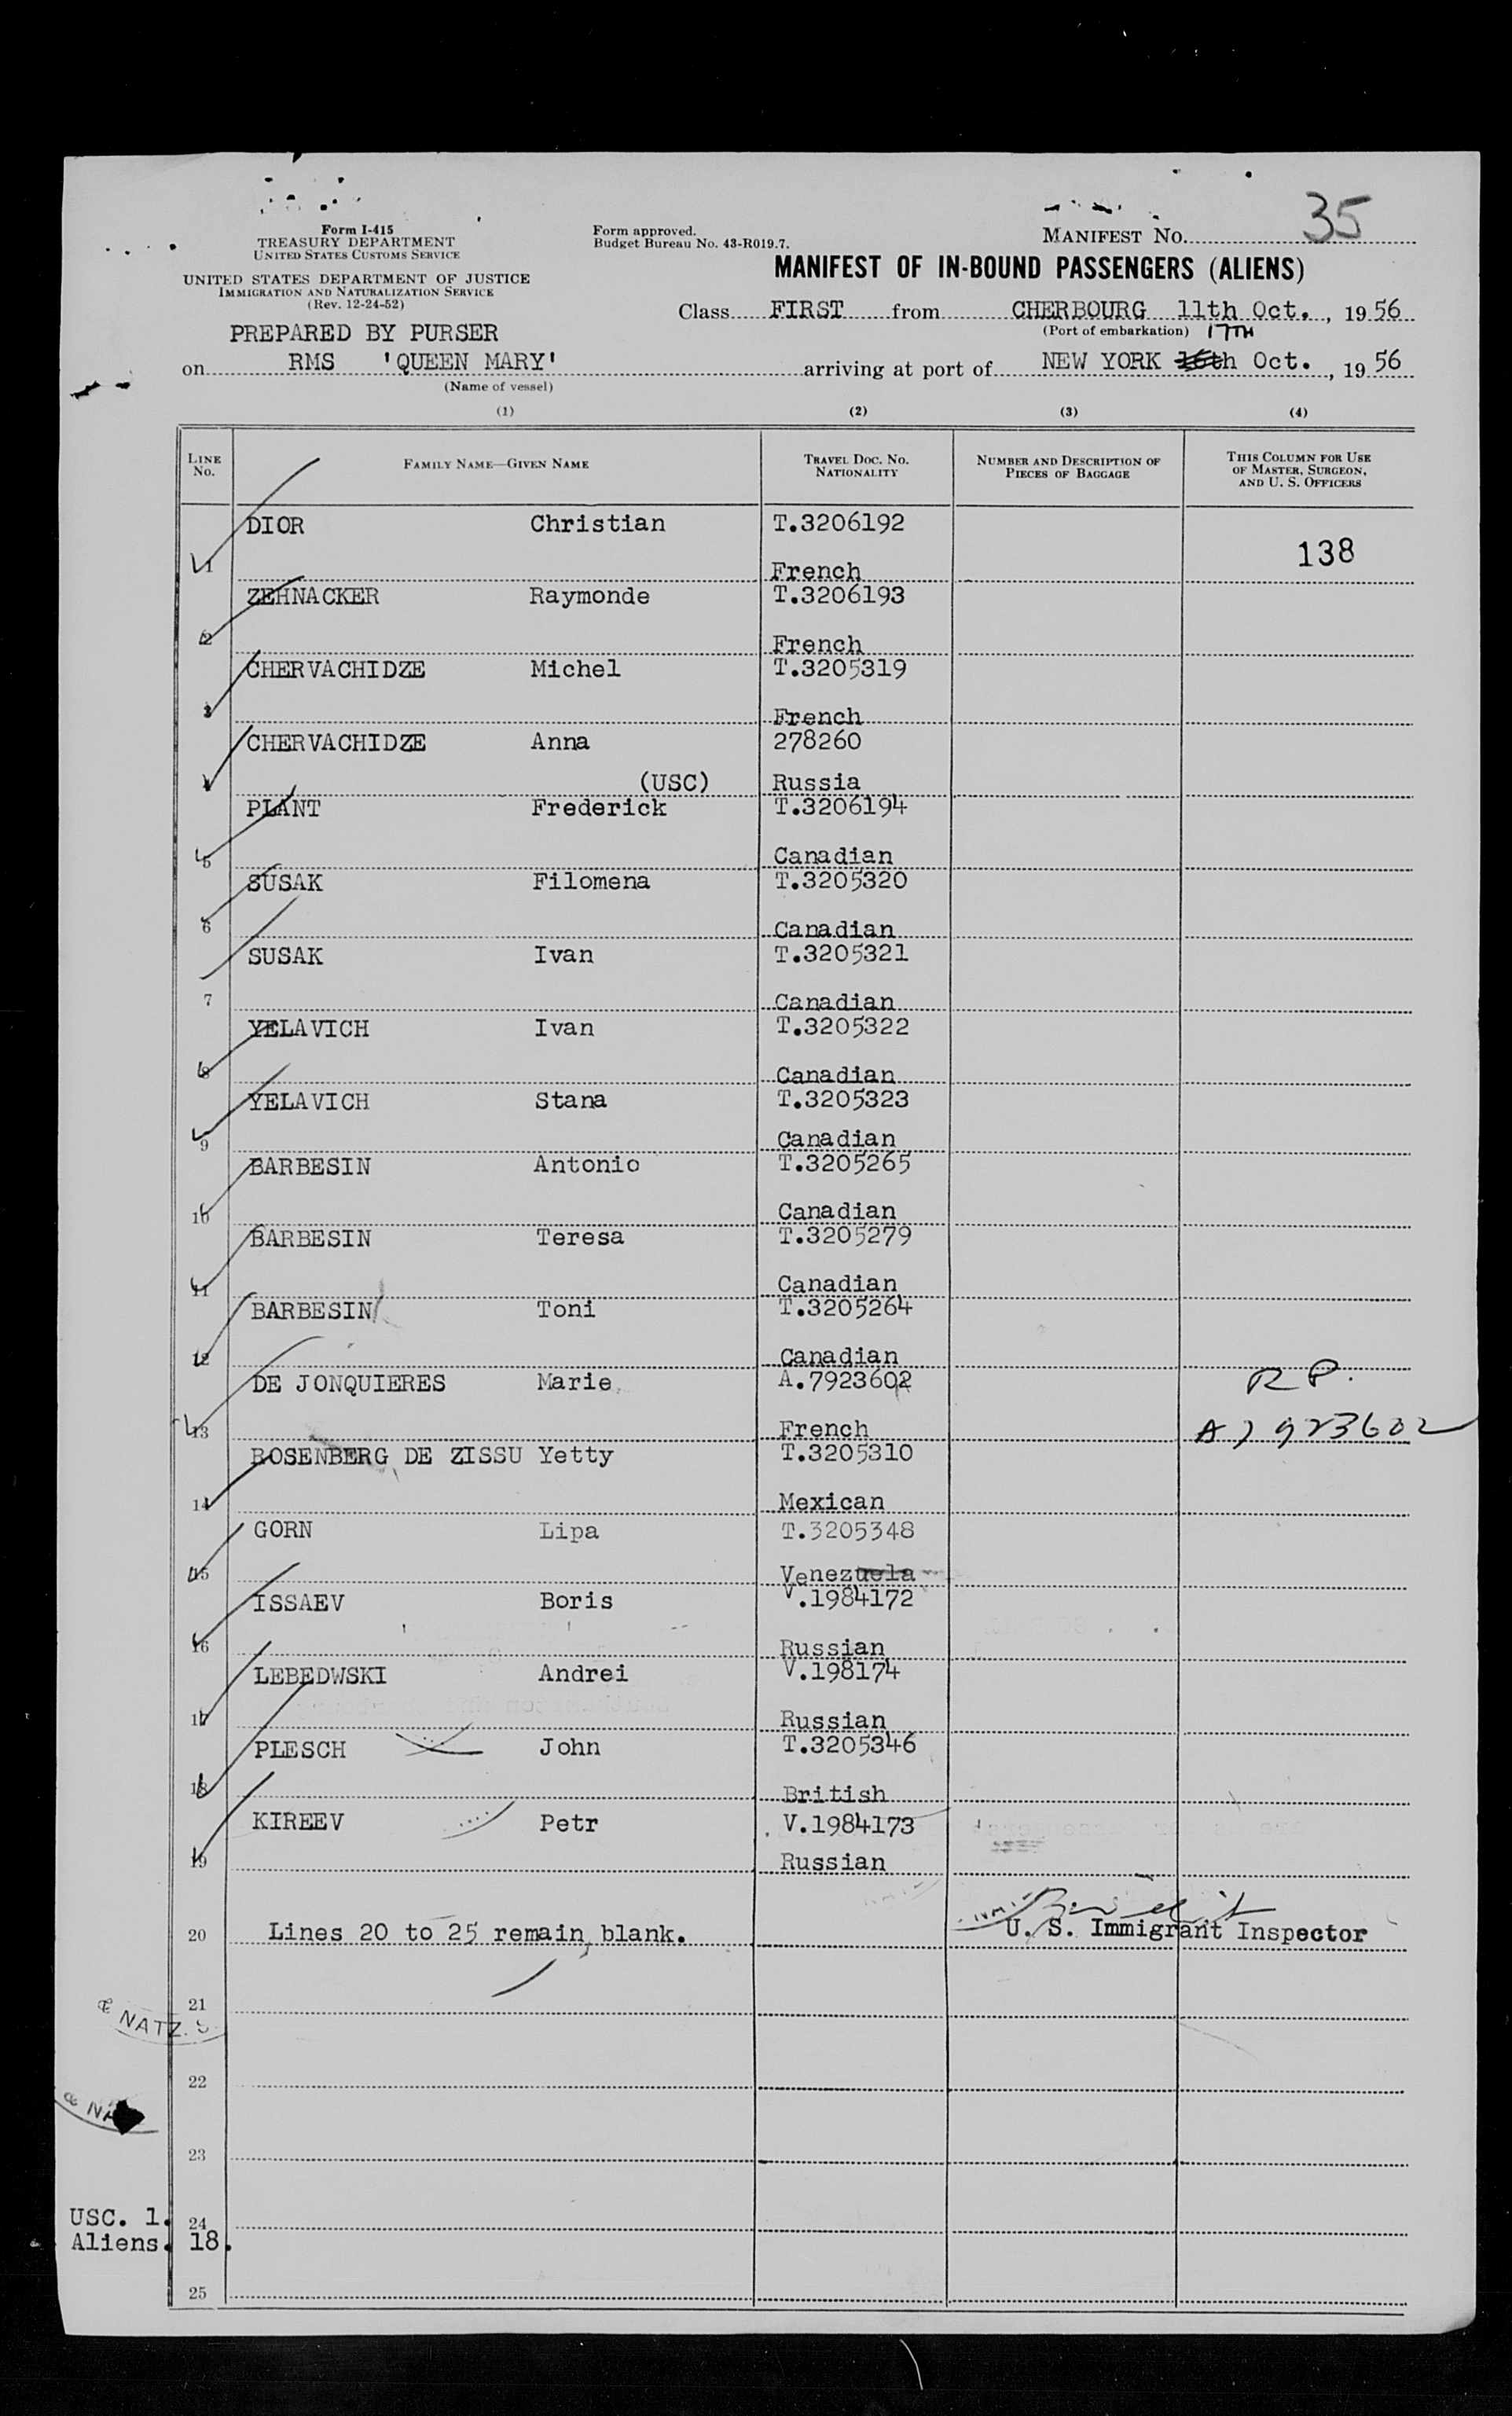 35
Form I-415
TREASURY DEPARTMENT
UNITED STATES CUSTOMS SERVICE
Form approved.
Budget Bureau No. 43-R019.7.
MANIFEST NO.
UNITED STATES DEPARTMENT OF JUSTICE
IMMIGRATION AND NATURALIZATION SERVICE
(Rev. 12-24-52)
MANIFEST OF IN-BOUND PASSENGERS (ALIENS)
Class FIRST from CHERBOURG 11th Oct., 19 56
(Port of embarkation) 17TH
PREPARED BY PURSER
on RMS 'QUEEN MARY' arriving at port of NEW YORK 16th Oct., 19 56
(Name of vessel)
(1) (2) (3) (4)
LINE NO. FAMILY NAME—GIVEN NAME TRAVEL DOC. NO. NATIONALITY NUMBER AND DESCRIPTION OF PIECES OF BAGGAGE THIS COLUMN FOR USE OF MASTER, SURGEON, AND U. S. OFFICERS
DIOR Christian T.3206192
138
1 French
ZEHNACKER Raymonde T.3206193
2 French
CHERVACHIDZE Michel T.3205319
3 French
CHERVACHIDZE Anna 278260
4 (USC) Russia
PLANT Frederick T.3206194
5 Canadian
SUSAK Filomena T.3205320
6 Canadian
SUSAK Ivan T.3205321
7 Canadian
YELAVICH Ivan T.3205322
8 Canadian
YELAVICH Stana T.3205323
9 Canadian
BARBESIN Antonio T.3205265
10 Canadian
BARBESIN Teresa T.3205279
11 Canadian
BARBESIN Toni T.3205264
12 Canadian
DE JONQUIERES Marie A.7923602 R P.
13 French A7923602
ROSENBERG DE ZISSU Yetty T.3205310
14 Mexican
GORN Lipa T.3205348
15 Venezuela
ISSAEV Boris V.1984172
16 Russian
LEBEDWSKI Andrei V.198174
17 Russian
PLESCH John T.3205346
18 British
KIREEV Petr V.1984173
19 Russian
20 Lines 20 to 25 remain blank. U. S. Immigrant Inspector
21
& NATZ. S
22
& NA
23
USC. 1. 24
Aliens. 18.
25